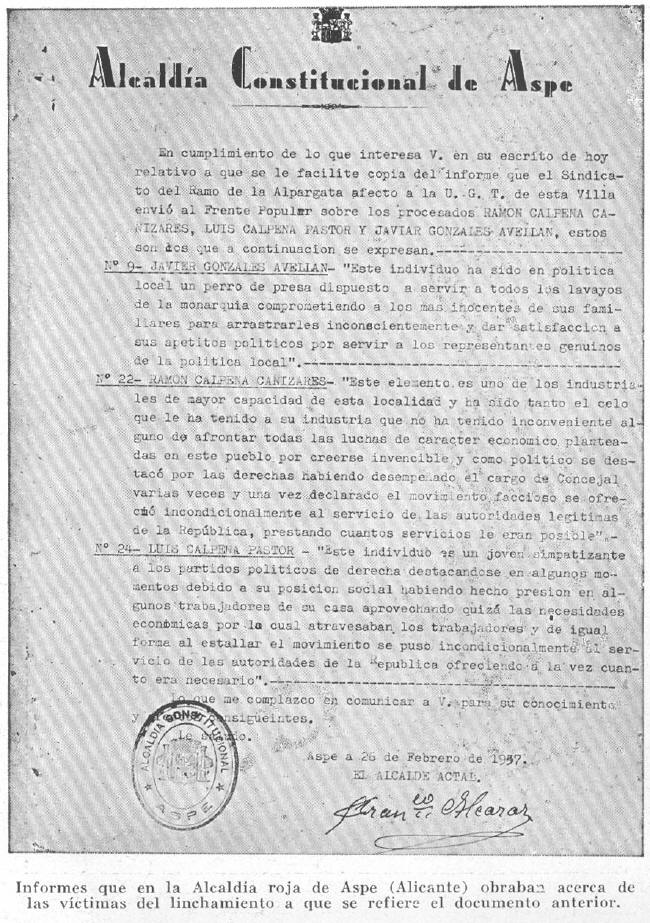 Alcaldía Constitucional de Aspe
En cumplimiento de lo que interesa V. en su escrito de hoy
relativo a que se le facilite copia del informe que el Sindica-
to del Ramo de la Alpargata afecto a la U. G. T. de esta Villa
envió al Frente Popular sobre los procesados RAMON CALPENA CA-
NIZARES, LUIS CALPENA PASTOR Y JAVIAR GONZALES AVELLAN, estos
son los que a continuacion se expresan.-
Nº 9- JAVIER GONZALES AVELLAN- "Este individuo ha sido en politica
local un perro de presa dispuesto a servir a todos los lavayos
de la monarquia comprometiendo a los mas inocentes de sus fami-
liares para arrastrarles inconscientemente y dar satisfaccion a
sus apetitos politicos por servir a los representantes genuinos
de la politica local".-
Nº 22- RAMON CALPENA CANIZARES- "Este elemento es uno de los industria-
les de mayor capacidad de esta localidad y ha sido tanto el celo
que le ha tenido a su industria que no ha tenido inconveniente al-
guno de afrontar todas las luchas de caracter economico plantea-
das en este pueblo por creerse invencible y como politico se des-
tacó por las derechas habiendo desempeñado el cargo de Concejal
varias veces y una vez declarado el movimiento faccioso se ofre-
ció incondicionalmente al servicio de las autoridades legitimas
de la República, prestando cuantos servicios le eran posible".-
Nº 24- LUIS CALPENA PASTOR - "Este individuo es un joven simpatizante
a los partidos politicos de derecha destacandose en algunos mo-
mentos debido a su posicion social habiendo hecho presion en al-
gunos trabajadores de su casa aprovechando quizá las necesidades
económicas por la cual atravesaban los trabajadores y de igual
forma al estallar el movimiento se puso incondicionalmente al ser-
vicio de las autoridades de la Republica ofreciendo a la vez cuan-
to era necesario".-
Lo que me complazco en comunicar a V. para su conocimiento
y consigüeintes.
Le saludo.
Aspe a 26 de Febrero de 1937.
EL ALCALDE ACTAL.
Franco Alcaraz
ALCALDÍA CONSTITUCIONAL
ASPE
Informes que en la Alcaldía roja de Aspe (Alicante) obraban acerca de
las víctimas del linchamiento a que se refiere el documento anterior.